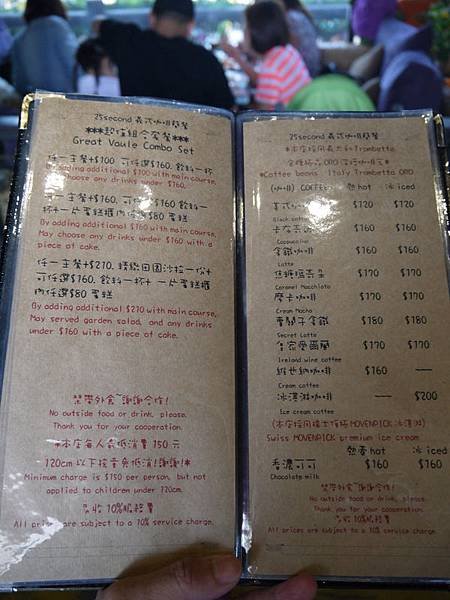 25second 義式咖啡簡餐
***超值組合套餐***
Great Vaule Combo Set
任一主餐+$100 可任選$160. 飲料一杯
By adding additional $100 with main course,
May choose any drinks under $160.
任一主餐+$160, 可任選$160 飲料一
杯+ 一片蛋糕櫃內任選$80 蛋糕
By adding additional $160 with main course,
May choose any drinks under $160 with a
piece of cake.
任一主餐+$270. 精緻田園沙拉一份+
可任選$160. 飲料一杯+ 一片蛋糕櫃
內任選$80 蛋糕
By adding additional $270 with main course,
May served garden salad, and any drinks
under $160 with a piece of cake.
禁帶外食~謝謝合作!
No outside food or drink, please.
Thank you for your cooperation.
*本店每人最低消費 150 元
120cm 以下孩童免低消!謝謝!*
Minimum charge is $150 per person, but not
applied to children under 120cm.
另收 10%服務費
All prices are subject to a 10% service charge.
25second 義式咖啡簡餐
*本店採用義大利Trombetta
ORO
*Coffee beans : Italy Trombetta ORO
(咖啡) COFFEE 熱 hot 冰 iced
美式咖啡 $120 $120
Black coffee
卡布奇諾 $160 $160
Cappuccino
拿鐵咖啡 $160 $160
Latte
焦糖瑪奇朵 $170 $170
Caramel Macchiato
摩卡咖啡 $170 $170
Cream Mocha
拿鐵 $180 $180
Secret Latte
愛爾蘭 $170 $170
Ireland wine coffee
維也納咖啡 $160 —
Cream coffee
冰淇淋咖啡 — $200
Ice cream coffee
(本店採用瑞士頂級MOVENPICK冰淇淋)
Swiss MOVENPICK premium ice cream
熱 hot 冰 iced
香濃可可 $160 $160
Chocolate milk
禁帶外食~謝謝合作!
No outside food or drink, please.
Thank you for your cooperation.
另收 10%服務費
All prices are subject to a 10% service charge.